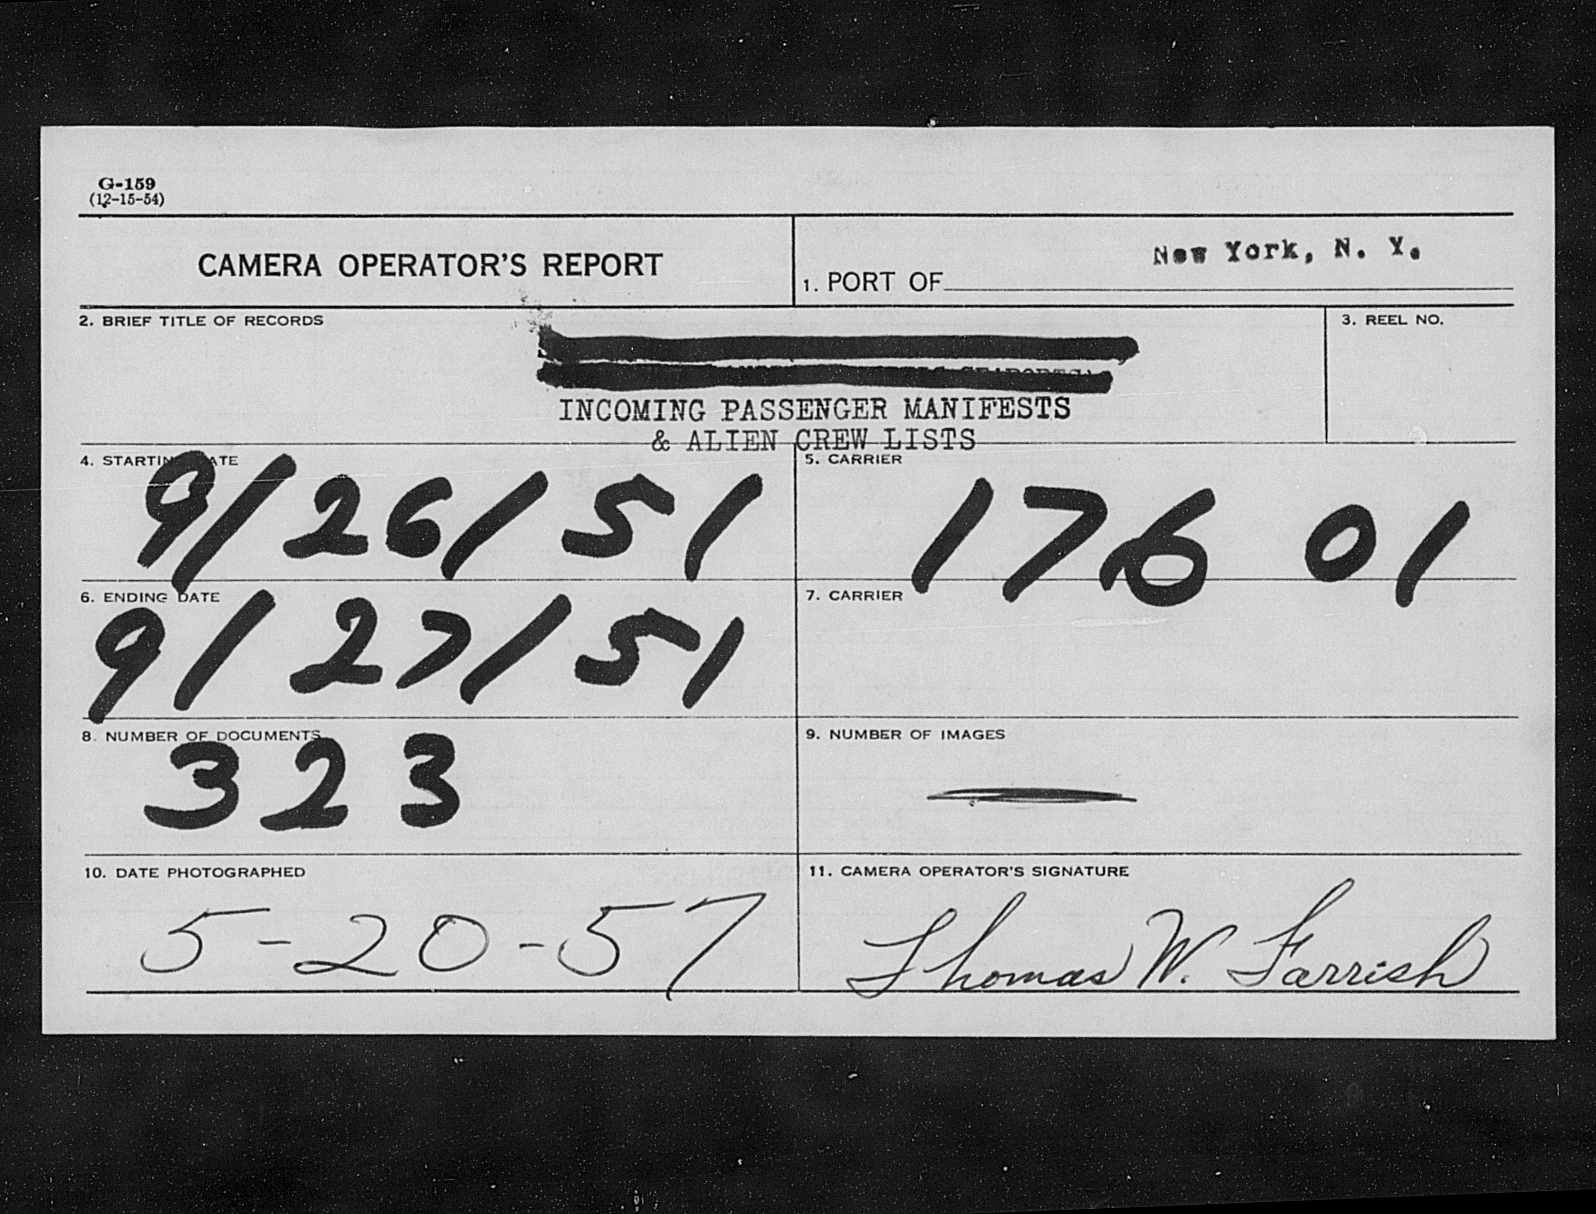 G-159
(12-15-54)
CAMERA OPERATOR'S REPORT
1. PORT OF New York, N. Y.
2. BRIEF TITLE OF RECORDS
3. REEL NO.
INCOMING PASSENGER MANIFESTS
& ALIEN CREW LISTS
4. STARTING DATE
9/26/51
5. CARRIER
176 01
6. ENDING DATE
9/27/51
7. CARRIER
8. NUMBER OF DOCUMENTS
323
9. NUMBER OF IMAGES
10. DATE PHOTOGRAPHED
5-20-57
11. CAMERA OPERATOR'S SIGNATURE
Thomas W. Farrish